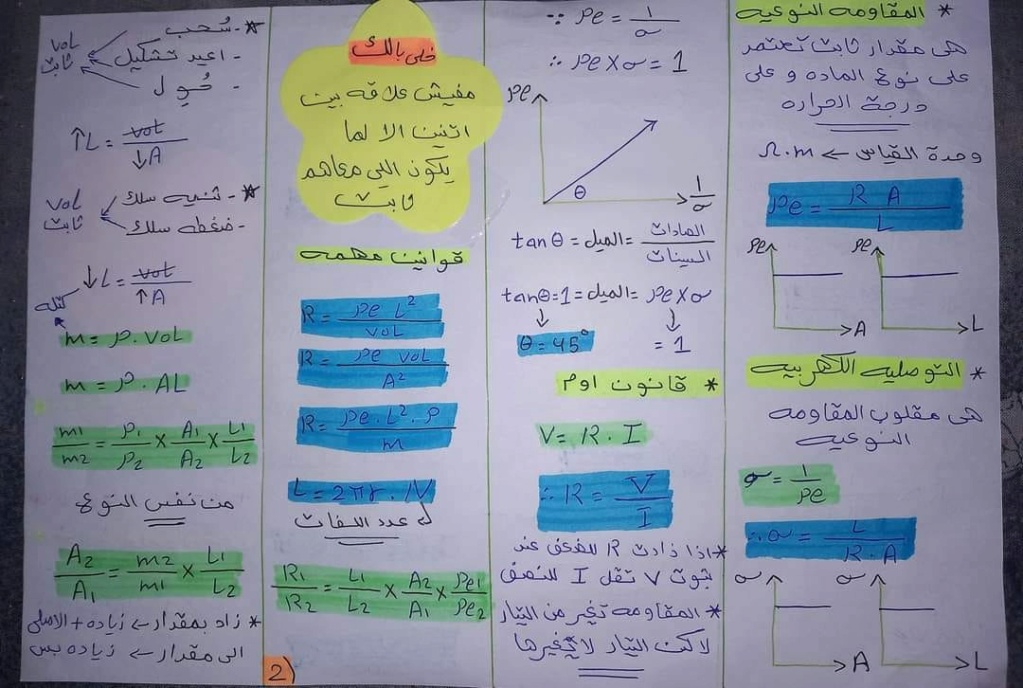 * المقاومه النوعيه
هى مقدار ثابت تعتمد
على نوع الماده و على
درجة الحراره
وحدة القياس ← Ω.m
ρe = R A / L
ρe
A
ρe
L
* التوصليه الكهربيه
هى مقلوب المقاومه
النوعيه
σ = 1/ρe
∴ σ = L / R.A
σ
A
σ
L
∵ ρe = 1/σ
∴ ρe × σ = 1
ρe
θ
1/σ
tan θ = الميل = الصادات / السينات
tanθ = 1 = الميل = ρe × σ
θ = 45°
= 1
* قانون اوم
V = R . I
∴ R = V / I
* اذا ذادت R للضعف عند
ثبوت V تقل I للنصف
* المقاومه تغير من التيار
لاكن التيار لا يغيرها
خلى بالك
مفيش علاقه بين
اتنين الا لما
يكون اللى معاهم
ثابت
قوانين مهمه
R = ρe L² / VOL
R = ρe VOL / A²
R = ρe . L² . ρ / m
L = 2πr . N
عدد اللفات
R1/R2 = L1/L2 × A2/A1 × ρe1/ρe2
2)
* - سُحب
- اعيد تشكيل
- حُول
vol
ثابت
↑L = vol / ↓A
* - ثنيه سلك
- ضغطه سلك
vol
ثابت
↓L = vol / ↑A
كتله
m = ρ . VOL
m = ρ . AL
m1/m2 = ρ1/ρ2 × A1/A2 × L1/L2
من نفس النوع
A2/A1 = m2/m1 × L1/L2
* زاد بمقدار ← زياده + الاصلى
الى مقدار ← زياده بس